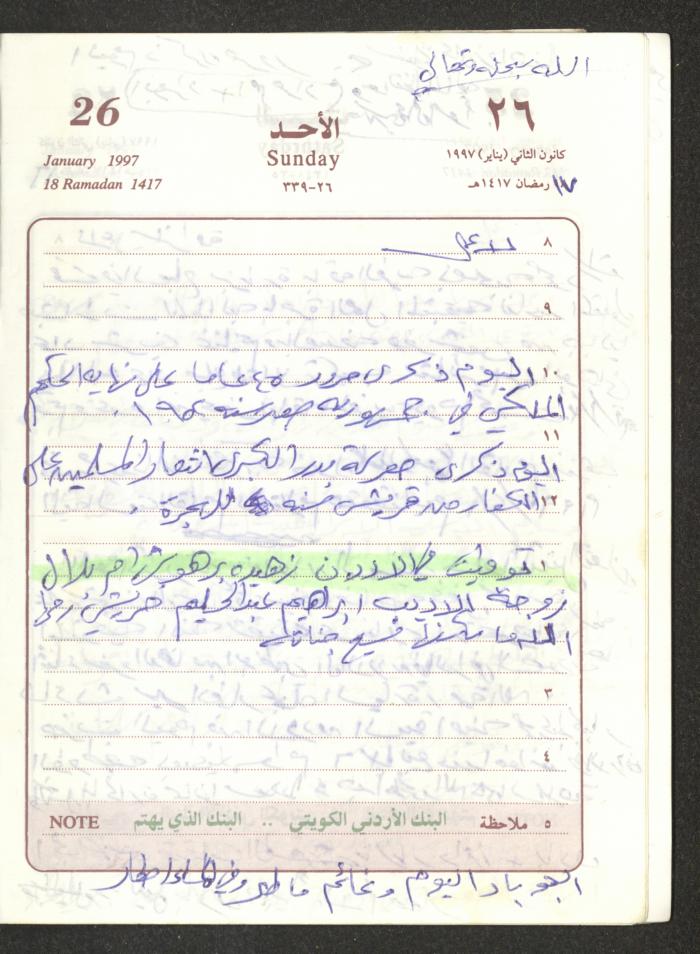 الله سبحانه وتعالى
26
الأحد
٢٦
January 1997
Sunday
كانون الثاني (يناير) ١٩٩٧
18 Ramadan 1417
٢٦-٣٣٩
١٧ رمضان ١٤١٧هـ
٨
٩
١٠ اليوم ذكرى مرور ٤٥ عاما على نهاية الحكم
الملكي في جمهورية مصر سنة ١٩٥٢.
١١
اليوم ذكرى معركة بدر الكبرى انتصار المسلمين على
١٢ الكفار من قريش سنة للهجرة.
١ توفيت في الاردن زهيده برهوش ام بلال
زوجة الاديب ابراهيم عبد الحليم رحمها
الله واسكنها فسيح جناته
٣
٤
NOTE
البنك الأردني الكويتي .. البنك الذي يهتم
٥ ملاحظة
الجو بارد اليوم وغائم ماطر وفي المساء امطار